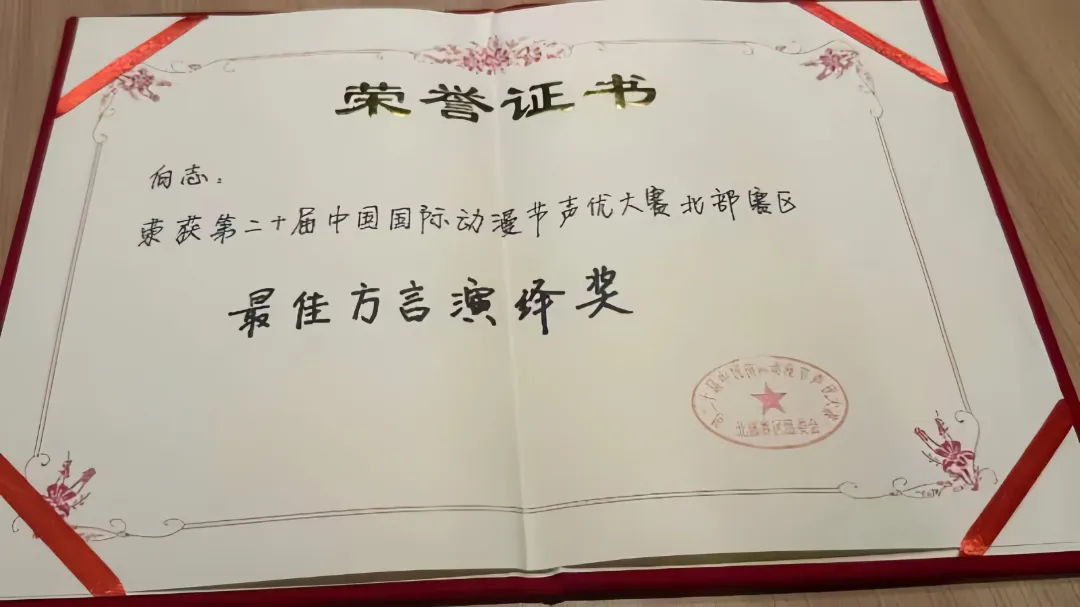 荣誉证书
向志：
荣获第二十届中国国际动漫节声优大赛北部赛区
最佳方言演绎奖